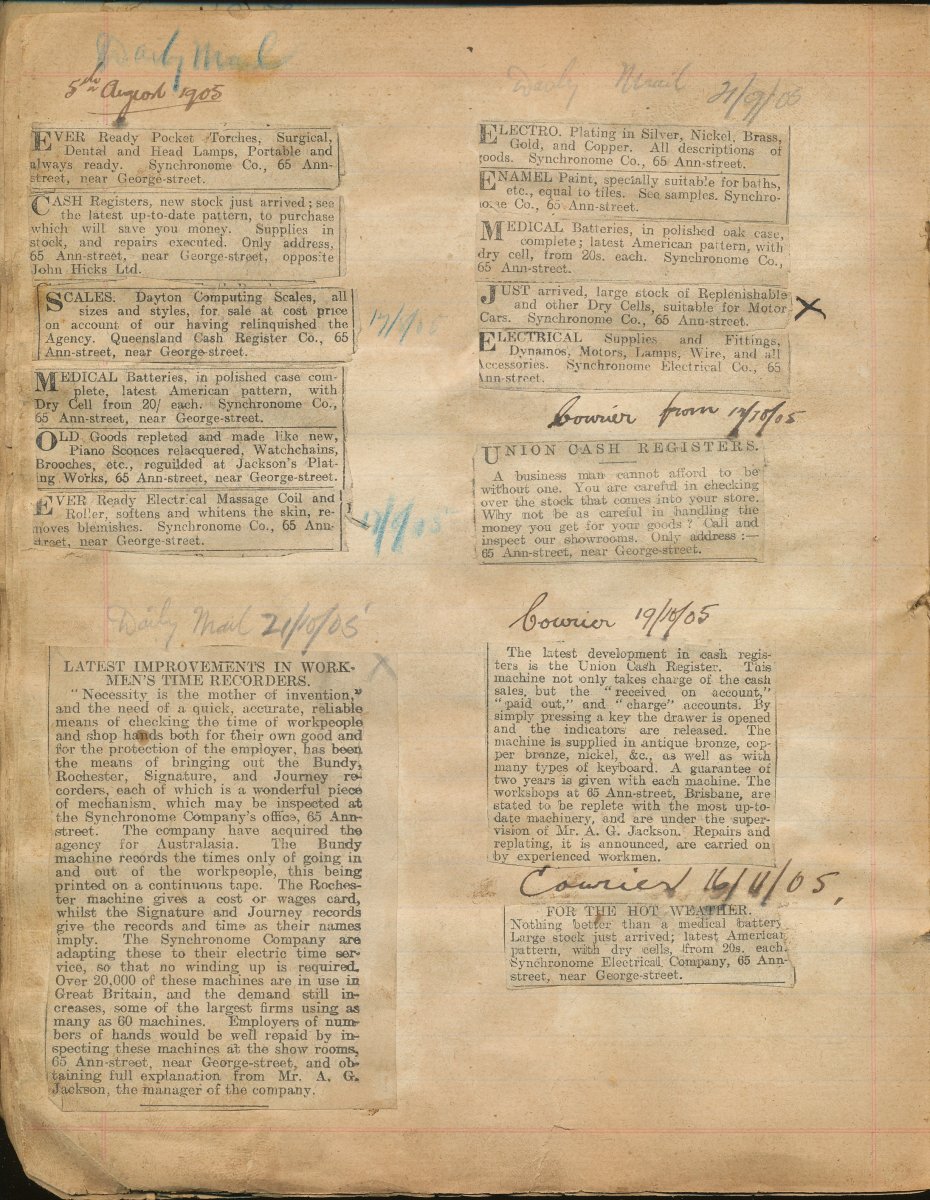 Daily Mail
5th August 1905
EVER Ready Pocket Torches, Surgical,
Dental and Head Lamps, Portable and
always ready. Synchronome Co., 65 Ann-
street, near George-street.
CASH Registers, new stock just arrived; see
the latest up-to-date pattern, to purchase
which will save you money. Supplies in
stock, and repairs executed. Only address,
65 Ann-street, near George-street, opposite
John Hicks Ltd.
SCALES. Dayton Computing Scales, all
sizes and styles, for sale at cost price
on account of our having relinquished the
Agency. Queensland Cash Register Co., 65
Ann-street, near George-street.
MEDICAL Batteries, in polished case com-
plete, latest American pattern, with
Dry Cell from 20/ each. Synchronome Co.,
65 Ann-street, near George-street.
OLD Goods repleted and made like new,
Piano Sconces relacquered, Watchchains,
Brooches, etc., reguilded at Jackson's Plat-
ing Works, 65 Ann-street, near George-street.
EVER Ready Electrical Massage Coil and
Roller, softens and whitens the skin, re-
moves blemishes. Synchronome Co., 65 Ann-
street, near George-street.
Daily Mail 21/10/05
LATEST IMPROVEMENTS IN WORK-
MEN'S TIME RECORDERS.
"Necessity is the mother of invention,"
and the need of a quick, accurate, reliable
means of checking the time of workpeople
and shop hands both for their own good and
for the protection of the employer, has been
the means of bringing out the Bundy,
Rochester, Signature, and Journey re-
corders, each of which is a wonderful piece
of mechanism, which may be inspected at
the Synchronome Company's office, 65 Ann-
street. The company have acquired the
agency for Australasia. The Bundy
machine records the times only of going in
and out of the workpeople, this being
printed on a continuous tape. The Roches-
ter machine gives a cost or wages card,
whilst the Signature and Journey records
give the records and time as their names
imply. The Synchronome Company are
adapting these to their electric time ser-
vice, so that no winding up is required.
Over 20,000 of these machines are in use in
Great Britain, and the demand still in-
creases, some of the largest firms using as
many as 60 machines. Employers of num-
bers of hands would be well repaid by in-
specting these machines at the show rooms,
65 Ann-street, near George-street, and ob-
taining full explanation from Mr. A. G.
Jackson, the manager of the company.
Daily Mail 21/9/05
ELECTRO. Plating in Silver, Nickel, Brass,
Gold, and Copper. All descriptions of
goods. Synchronome Co., 65 Ann-street.
ENAMEL Paint, specially suitable for baths,
etc., equal to tiles. See samples. Synchro-
nome Co., 65 Ann-street.
MEDICAL Batteries, in polished oak case,
complete; latest American pattern, with
dry cell, from 20s. each. Synchronome Co.,
65 Ann-street.
JUST arrived, large stock of Replenishable
and other Dry Cells, suitable for Motor
Cars. Synchronome Co., 65 Ann-street.
ELECTRICAL Supplies and Fittings,
Dynamos, Motors, Lamps, Wire, and all
Accessories. Synchronome Electrical Co., 65
Ann-street.
Courier from 17/10/05
UNION CASH REGISTERS.
A business man cannot afford to be
without one. You are careful in checking
over the stock that comes into your store.
Why not be as careful in handling the
money you get for your goods? Call and
inspect our showrooms. Only address:—
65 Ann-street, near George-street.
Courier 19/10/05
The latest development in cash regis-
ters is the Union Cash Register. This
machine not only takes charge of the cash
sales, but the "received on account,"
"paid out," and "charge" accounts. By
simply pressing a key the drawer is opened
and the indicators are released. The
machine is supplied in antique bronze, cop-
per bronze, nickel, &c., as well as with
many types of keyboard. A guarantee of
two years is given with each machine. The
workshops at 65 Ann-street, Brisbane, are
stated to be replete with the most up-to-
date machinery, and are under the super-
vision of Mr. A. G. Jackson. Repairs and
replating, it is announced, are carried on
by experienced workmen.
Courier 16/11/05,
FOR THE HOT WEATHER.
Nothing better than a medical battery
Large stock just arrived; latest American
pattern, with dry cells, from 20s. each.
Synchronome Electrical Company, 65 Ann-
street, near George-street.